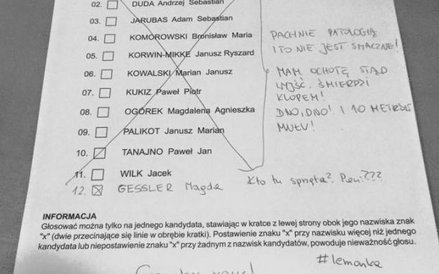 02. DUDA Andrzej Sebastian
03. JARUBAS Adam Sebastian
04. KOMOROWSKI Bronisław Maria
05. KORWIN-MIKKE Janusz Ryszard
06. KOWALSKI Marian Janusz
07. KUKIZ Paweł Piotr
08. OGÓREK Magdalena Agnieszka
09. PALIKOT Janusz Marian
10. TANAJNO Paweł Jan
11. WILK Jacek
12. GESSLER Magda
PACHNIE PATOLOGIĄ
I TO NIE JEST SMACZNE!
MAM OCHOTĘ STĄD
WYJŚĆ. ŚMIERDZI
KLOPEM!
DNO, DNO! I 10 METRÓW
MUŁU!
Kto tu sprząta? Pan???
INFORMACJA
Głosować można tylko na jednego kandydata, stawiając w kratce z lewej strony obok jego nazwiska znak
"x" (dwie przecinające się linie w obrębie kratki). Postawienie znaku "x" przy nazwisku więcej niż jednego
kandydata lub niepostawienie znaku "x" przy żadnym z nazwisk kandydatów, powoduje nieważność głosu.